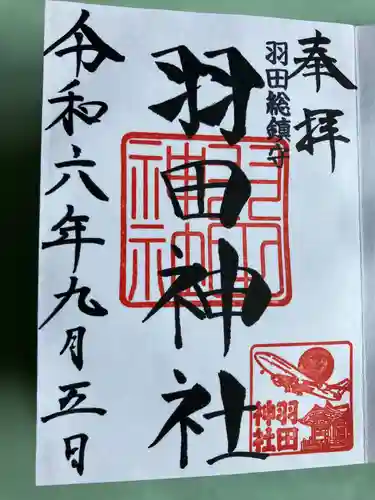 奉拝
羽田総鎮守
羽田神社
羽田神社
羽田
神社
令和六年九月五日